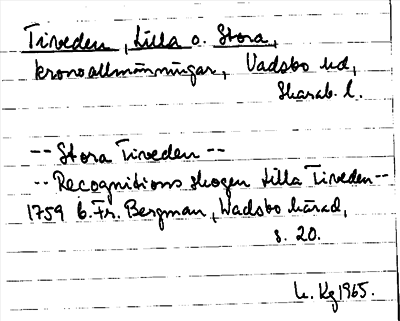 Tiveden, Lilla o. Stora,
kronoallmänningar, Vadsbo hd,
Skarab. l.
-- Stora Tiveden --
-- Recognitions skogen Lilla Tiveden --
1759 b. Fr. Bergman, Wadsbo härad,
s. 20.
Kg 1965.